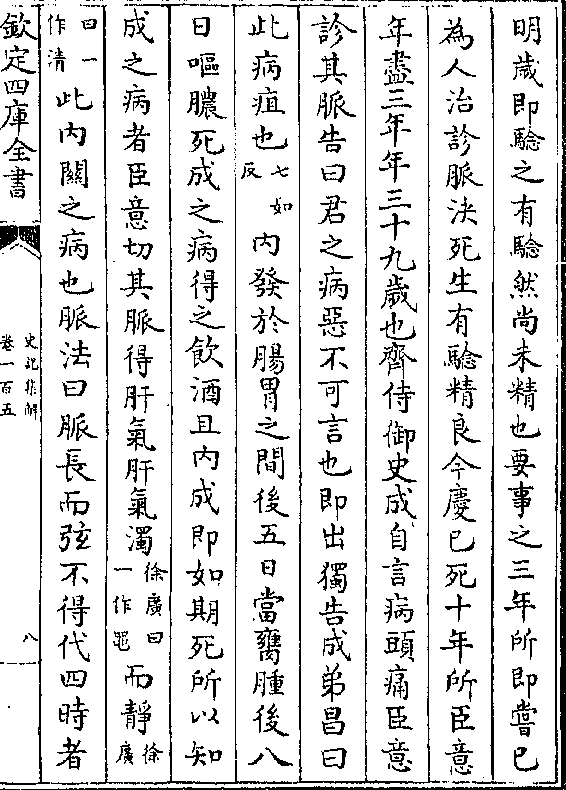 明歲即驗之有驗然尚未精也要事之三年所即嘗已
為人治診脈決死生有驗精良今慶已死十年所臣意
年盡三年年三十九歲也齊侍御史成自言病頭痛臣意
診其脈告曰君之病惡不可言也即出獨告成弟昌曰
此病疽也七如反内發於腸胃之間後五日當㿈腫後八
日嘔膿死成之病得之飲酒且内成即如期死所以知
成之病者臣意切其脈得肝氣肝氣濁徐廣曰一作黽而靜徐廣
曰一作清此内關之病也脈法曰脈長而弦不得代四時者
欽定四庫全書
史記集解
卷一百五
八